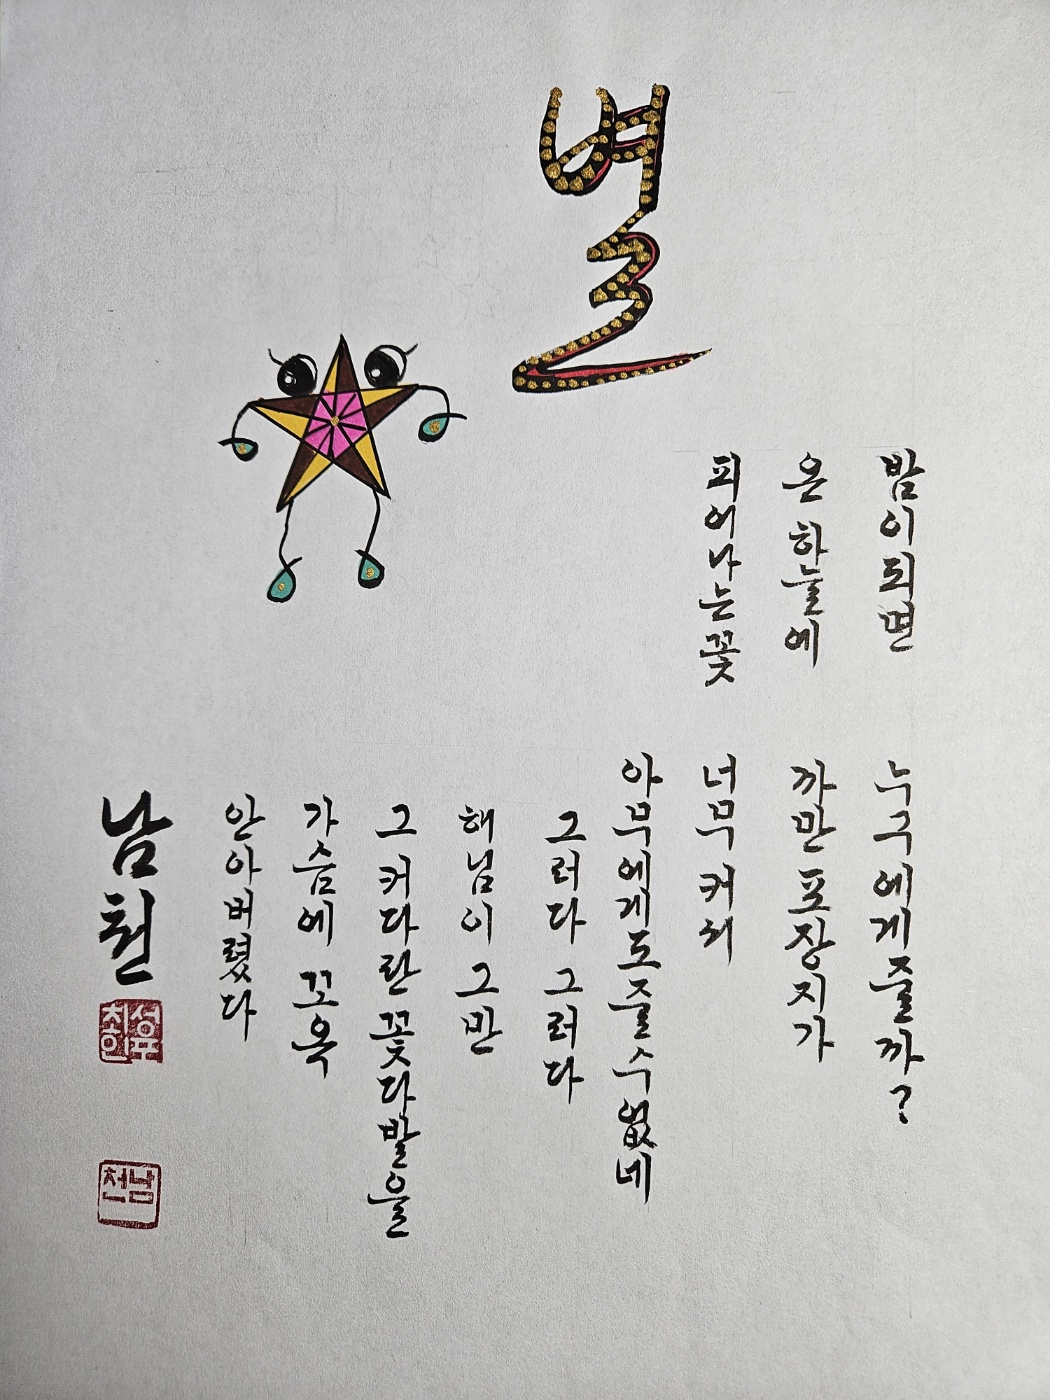 별
밤이되면
온 하늘에
피어나는꽃
누구에게줄까?
까만포장지가
너무커서
아무에게도줄수없네
그러다 그러다
해님이 그만
그 커다란 꽃다발을
가슴에 꼬옥
안아버렸다
남천
남천